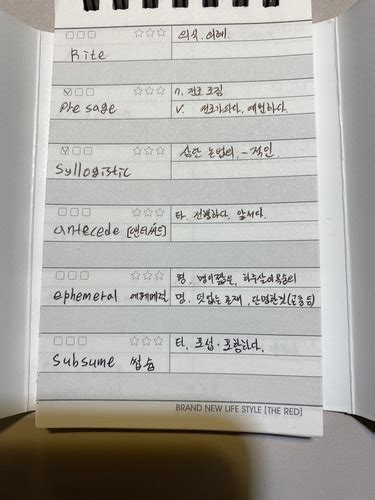 Rite
의식. 의례.
presage
n. 전조 조짐
v. 전조가 되다, 예언하다.
Syllogistic
삼단 논법의. -적인.
antecede [앤티시드]
타. 선행하다, 앞서다.
ephemeral 에페메럴
형. 명이 짧은, 하루살이 목숨의
명. 덧없는 존재, 단명한것(곤충 등)
Subsume 썹숨
타. 포섭·포함하다.
BRAND NEW LIFE STYLE [THE RED]